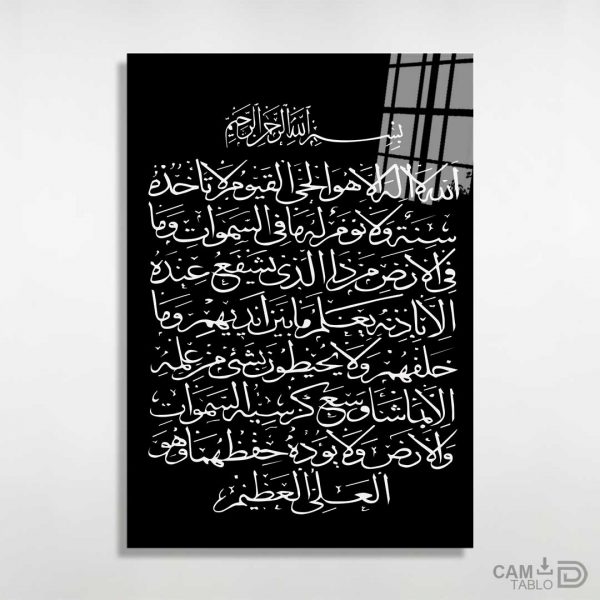 بسم الله الرحمن الرحيم
الله لا إله إلا هو الحي القيوم لا تأخذه
سنة ولا نوم له ما في السموات وما
في الأرض من ذا الذي يشفع عنده
إلا بإذنه يعلم ما بين أيديهم وما
خلفهم ولا يحيطون بشئ من علمه
إلا بما شاء وسع كرسيه السموات
والأرض ولا يؤده حفظهما وهو
العلي العظيم
CAM
TABLO